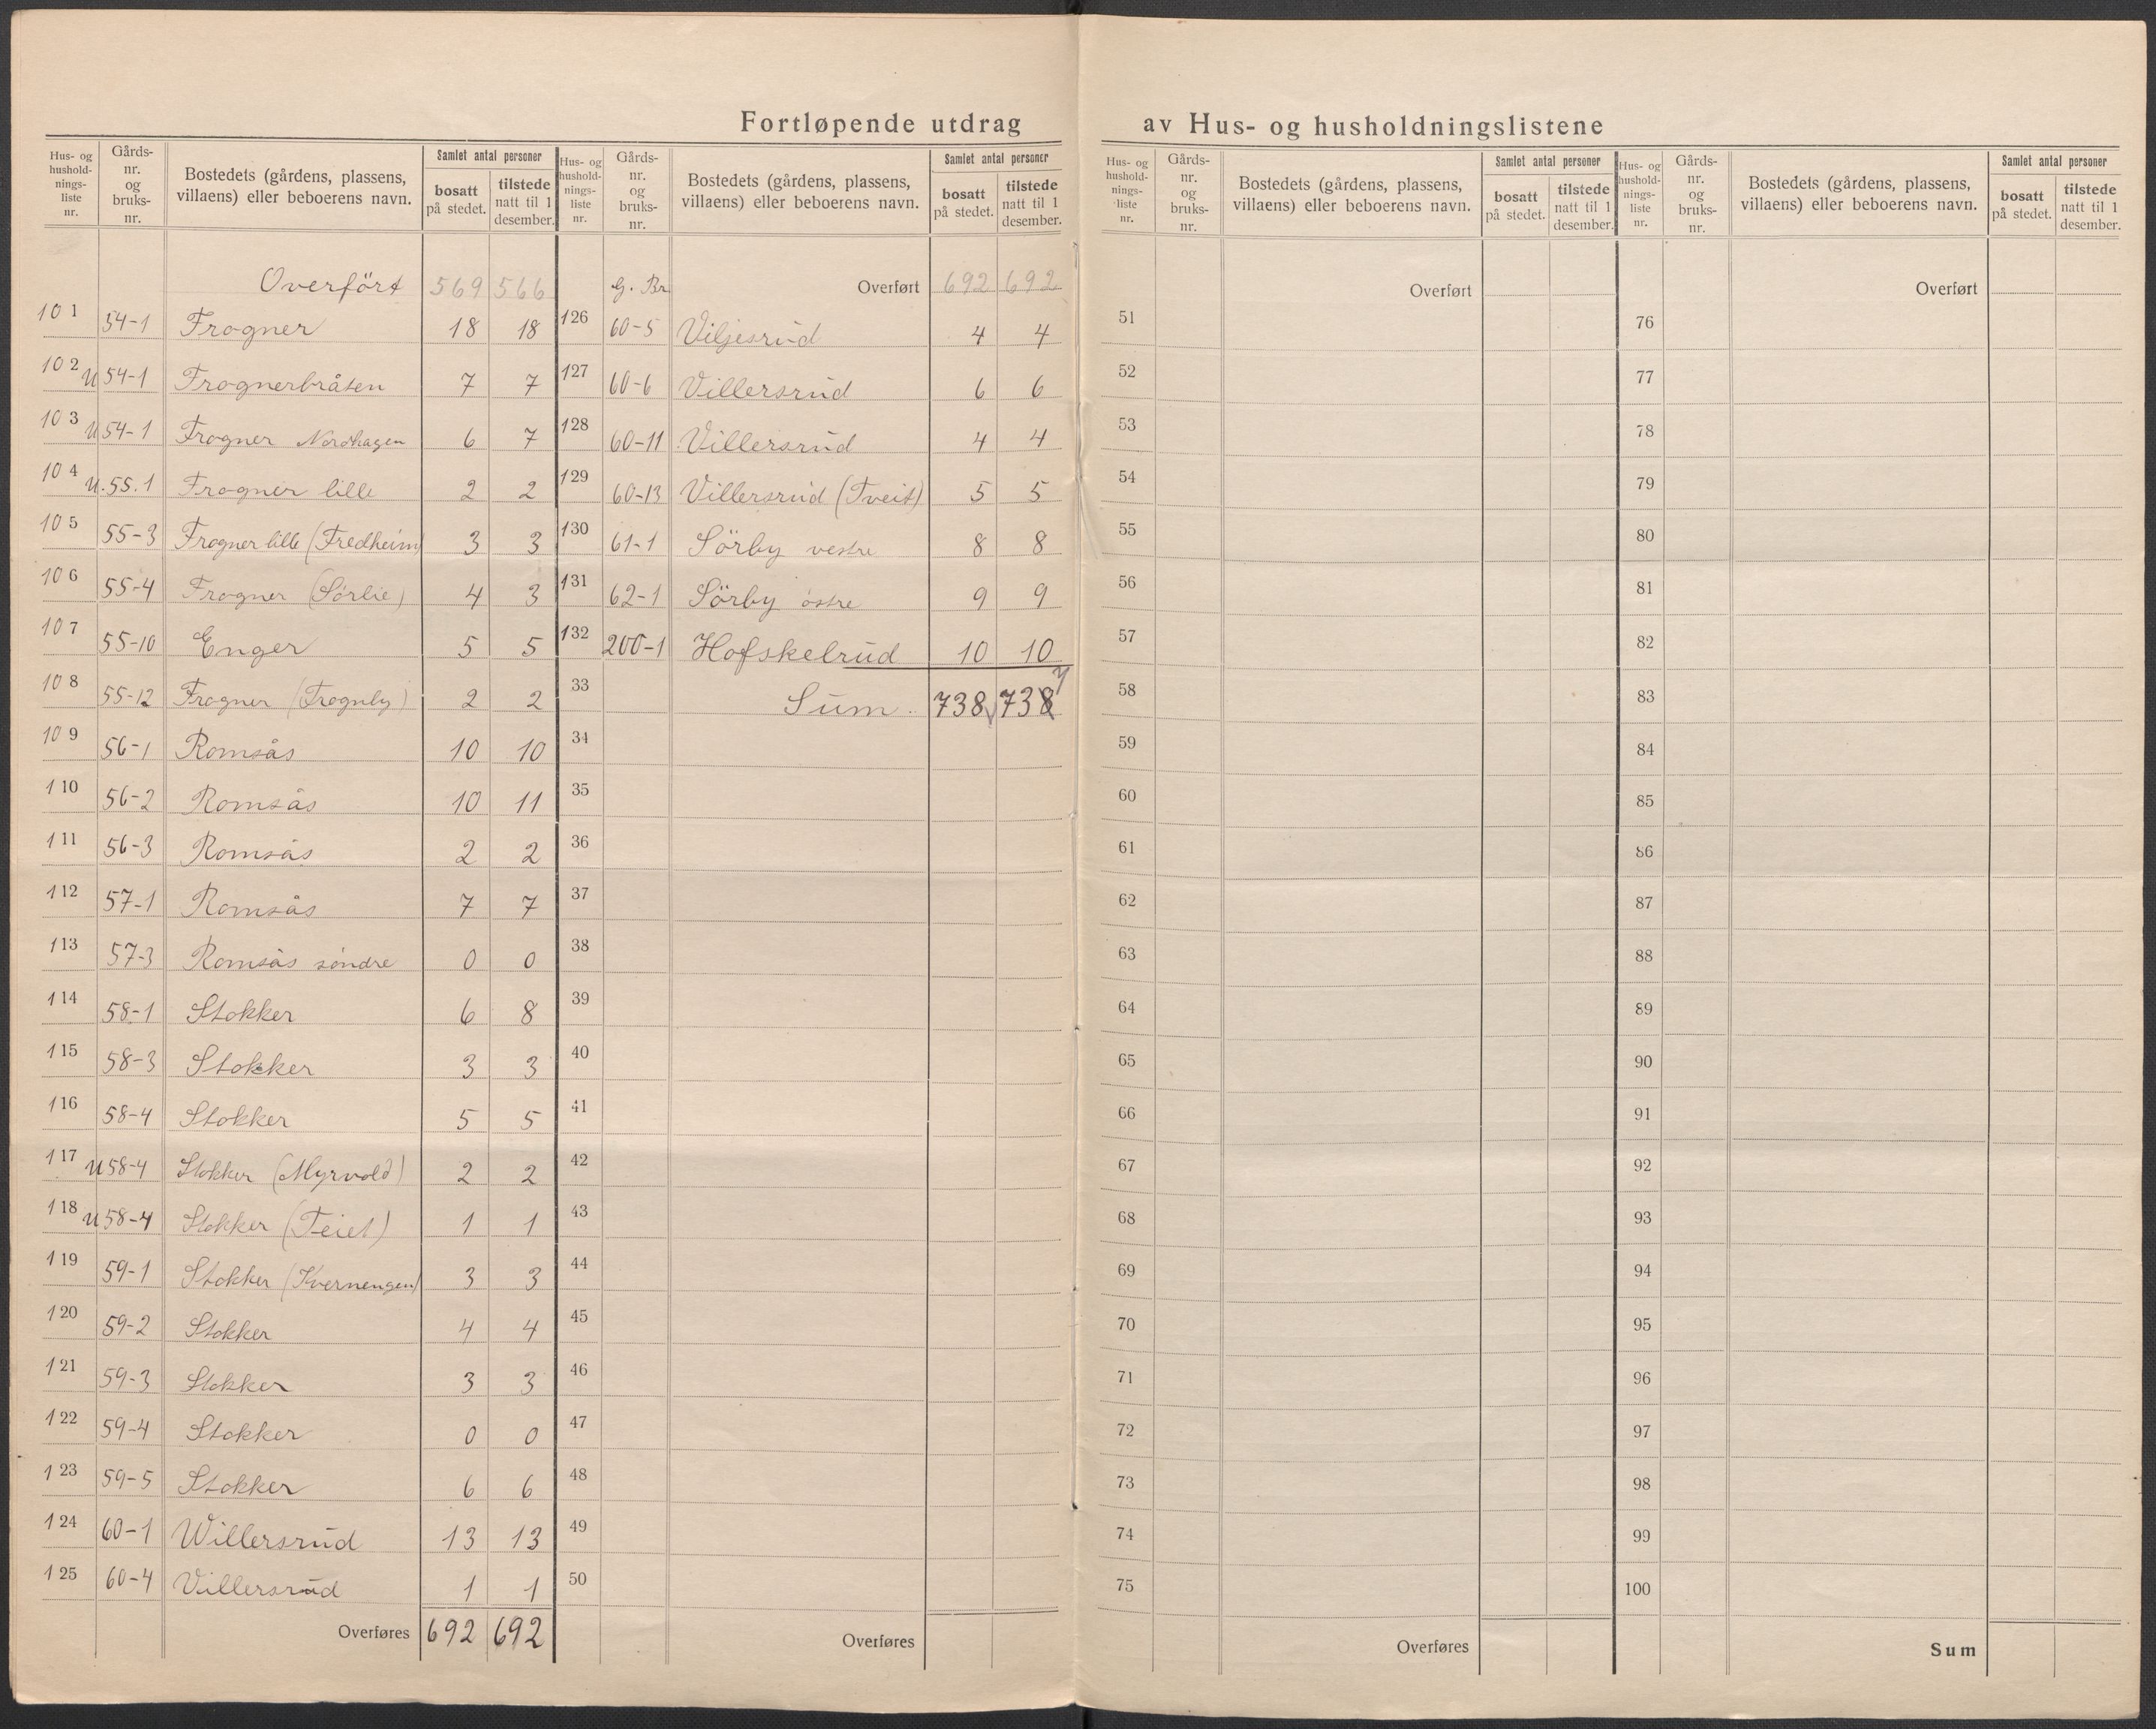 Fortløpende utdrag av Hus- og husholdningslistene
Hus- og hushold-nings-liste nr. | Gårds-nr. og bruks-nr. | Bostedets (gårdens, plassens, villaens) eller beboerens navn. | Samlet antal personer bosatt på stedet. | tilstede natt til 1 desember.
Overført 569 566
101 54-1 Frogner 18 18
102 U 54-1 Frognerbråten 7 7
103 U 54-1 Frogner Nordhagen 6 7
104 U. 55.1 Frogner lille 2 2
105 55-3 Frogner lille (Fredheim) 3 3
106 55-4 Frogner (Sörlie) 4 3
107 55-10 Enger 5 5
108 55-12 Frogner (Frognly) 2 2
109 56-1 Romsås 10 10
110 56-2 Romsås 10 11
111 56-3 Romsås 2 2
112 57-1 Romsås 7 7
113 57-3 Romsås söndre 0 0
114 58-1 Stokker 6 8
115 58-3 Stokker 3 3
116 58-4 Stokker 5 5
117 U 58-4 Stokker (Myrvold) 2 2
118 U 58-4 Stokker (Teiet) 1 1
119 59-1 Stokker (Kvernengen) 3 3
120 59-2 Stokker 4 4
121 59-3 Stokker 3 3
122 59-4 Stokker 0 0
123 59-5 Stokker 6 6
124 60-1 Willersrud 13 13
125 60-4 Villersrud 1 1
Overføres 692 692
Hus- og hushold-nings-liste nr. | Gårds-nr. og bruks-nr. | Bostedets (gårdens, plassens, villaens) eller beboerens navn. | Samlet antal personer bosatt på stedet. | tilstede natt til 1 desember.
G. Br. Overført 692 692
126 60-5 Viljesrud 4 4
127 60-6 Villersrud 6 6
128 60-11 Villersrud 4 4
129 60-13 Villersrud (Tveit) 5 5
130 61-1 Sörby vestre 8 8
131 62-1 Sörby östre 9 9
132 200-1 Hofskelrud 10 10
33 Sum. 738 738 7
34
35
36
37
38
39
40
41
42
43
44
45
46
47
48
49
50
Overføres
Hus- og hushold-nings-liste nr. | Gårds-nr. og bruks-nr. | Bostedets (gårdens, plassens, villaens) eller beboerens navn. | Samlet antal personer bosatt på stedet. | tilstede natt til 1 desember.
Overført
51
52
53
54
55
56
57
58
59
60
61
62
63
64
65
66
67
68
69
70
71
72
73
74
75
Overføres
Hus- og hushold-nings-liste nr. | Gårds-nr. og bruks-nr. | Bostedets (gårdens, plassens, villaens) eller beboerens navn. | Samlet antal personer bosatt på stedet. | tilstede natt til 1 desember.
Overført
76
77
78
79
80
81
82
83
84
85
86
87
88
89
90
91
92
93
94
95
96
97
98
99
100
Sum